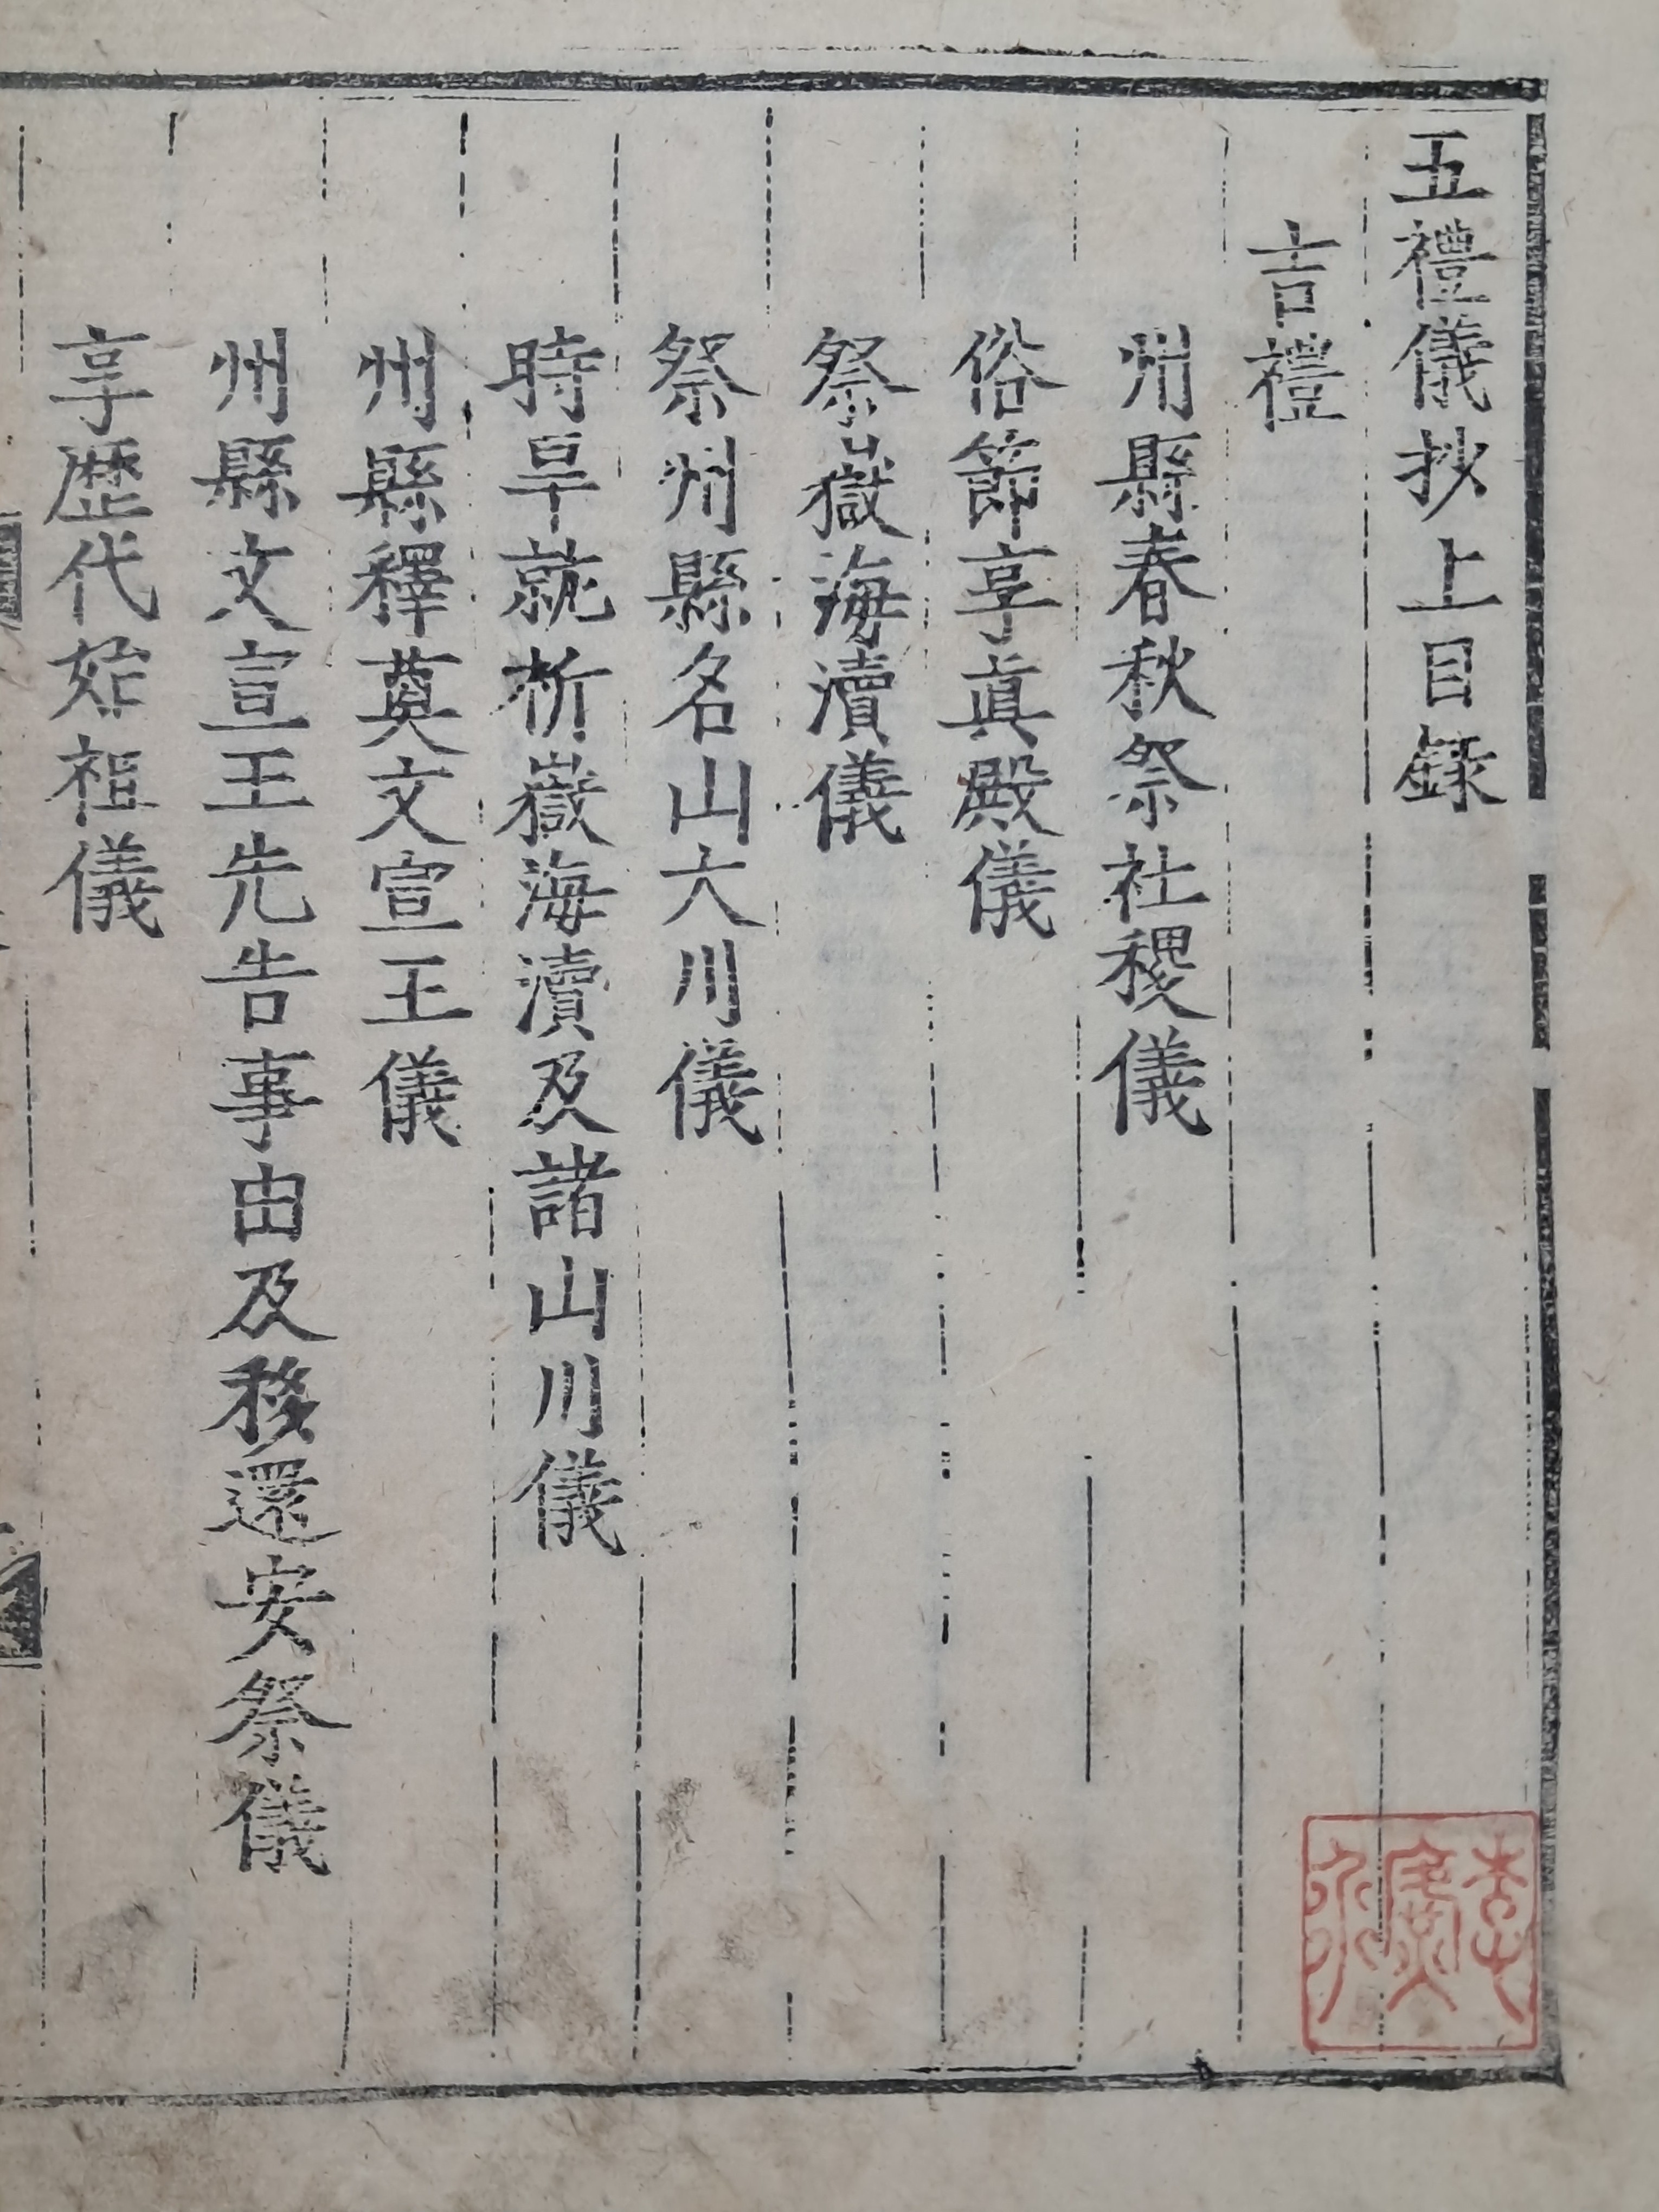 五禮儀抄上目録
吉禮
州縣春秋祭社稷儀
俗節享眞殿儀
祭嶽海瀆儀
祭州縣名山大川儀
時旱就祈嶽海瀆及諸山川儀
州縣釋奠文宣王儀
州縣文宣王先告事由及移還安祭儀
享歷代始祖儀